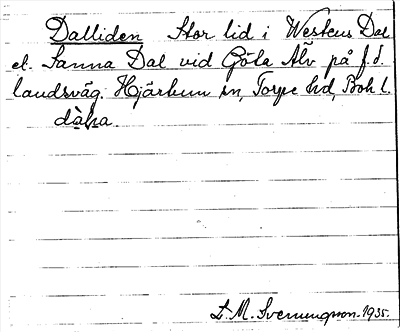 Dalliden Stor lid i Westeus Dal
el. Sanna Dal vid Göta Älv på f.d.
landsväg. Hjärtum sn, Torpe hd, Boh l.
L. M. Svenungsson. 1935.